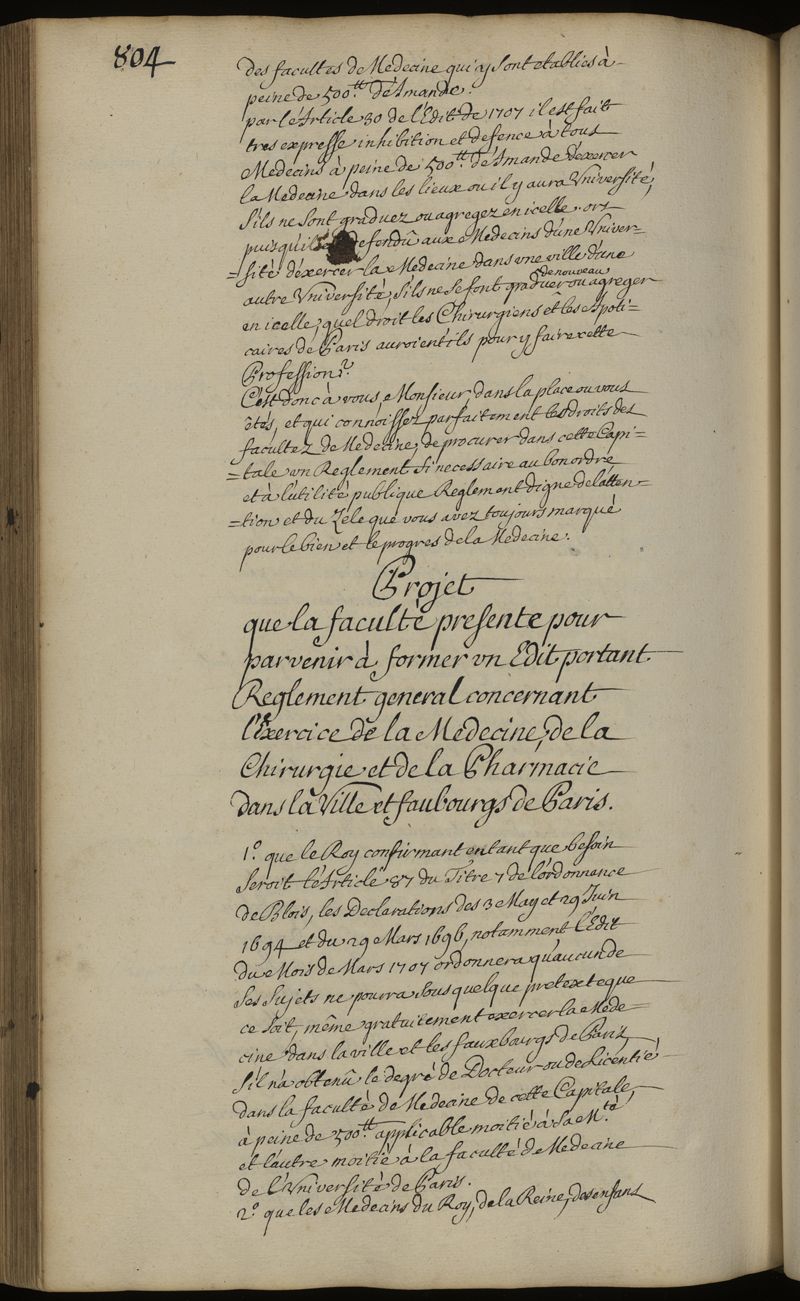 804
des facultes de Medecine qui y sont etablies à
peine de 500.tt d'Amande.
par l'Article 30 de l'Edit de 1707 il est fait
tres expresse inhibition et defence à tous
Medecins à peine de 500.tt d'Amande d'exercer
la Medecine dans les lieux ou il y aura Université,
s'ils ne sont graduez ou agregez en icelle. ors
puisqu'il defendû aux Medecins d'une Univer=
=sité d'exercer la Medecine dans une ville d'une
autre Université, s'ils ne se font graduer de nouveau ou agreger
en icelle; quel droit les Chirurgiens et les Apoti=
caires de Paris auroient ils pour y faire cette
Profession?
C'est donc à vous, Monsieur, dans la place ou vous
êtes, et qui connoissez parfaitement les droits des
facultez de Medecine, de procurer dans cette Capi=
=tale un Reglement si necessaire au bon ordre
et à l'utilité publique Reglement digne de l'atten=
=tion et du Zele que vous avez toujours marqué
pour le bien et le progres de la Medecine.
Projet
que la faculté presente pour
parvenir à former un Edit portant
Reglement general concernant
l'Exercice de la Medecine, de la
Chirurgie et de la Pharmacie
dans la Ville et faubourgs de Paris.
1.º que le Roy confirmant entant que besoin
seroit l'Article 87 du Titre 7 de l'ordonnance
de Blois, les Declarations des 3 May et 29 Juin
1694 et du 29 Mars 1696, notamment l'Edit
du Mois de Mars 1707 ordonnera qu'aucun de
ses sujets ne pourra sous quelque pretexte que
ce soit, même gratuitement exercer la Mede=
cine dans la ville et les fauxbourgs de Paris,
s'il n'a obtenû le degré de Docteur ou de Licentié
dans la faculté de Medecine de cette Capitale,
à peine de 500.tt applicable moitié à Sa M.té
et l'autre moitié à la faculté de Medecine
de l'Université de Paris.
2.º que les Medecins du Roy, de la Reine, des enfans